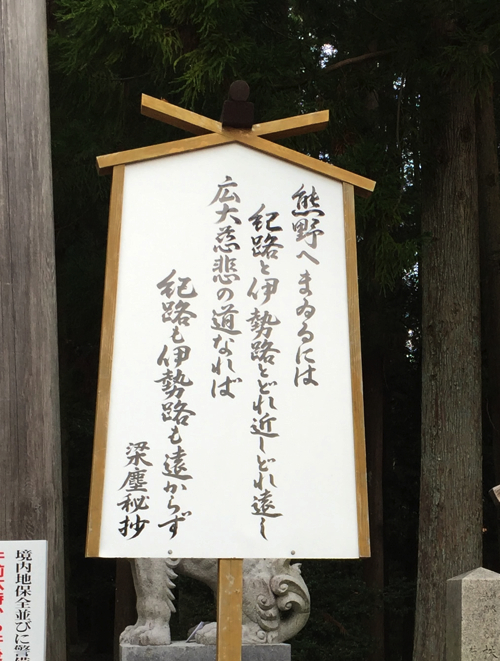 熊野へまゐるには
紀路と伊勢路とどれ近しどれ遠し
広大慈悲の道なれば
紀路も伊勢路も遠からず
梁塵秘抄
境内地保全並びに警備